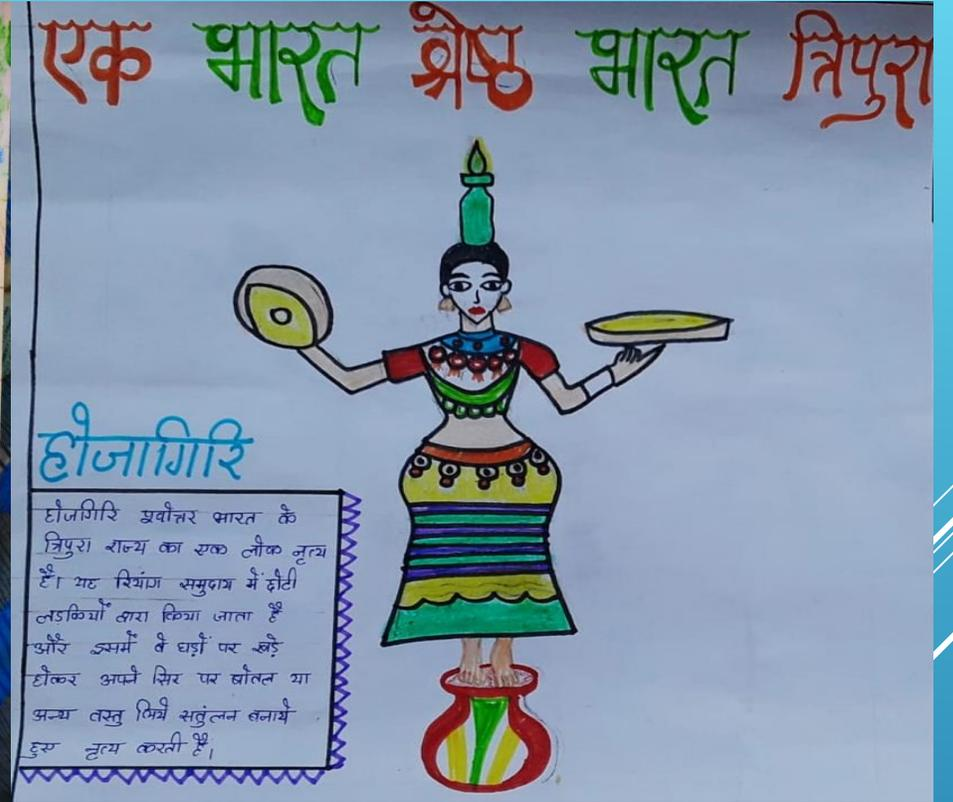 एक भारत श्रेष्ठ भारत त्रिपुरा
होजागिरि
होजगिरि पूर्वोत्तर भारत के
त्रिपुरा राज्य का एक लोक नृत्य
है। यह रियांग समुदाय में छोटी
लडकियों द्वारा किया जाता है
और इसमें वे घड़ों पर खड़े
होकर अपने सिर पर बोतल या
अन्य वस्तु लिये सतुंलन बनाये
हुए नृत्य करती है।